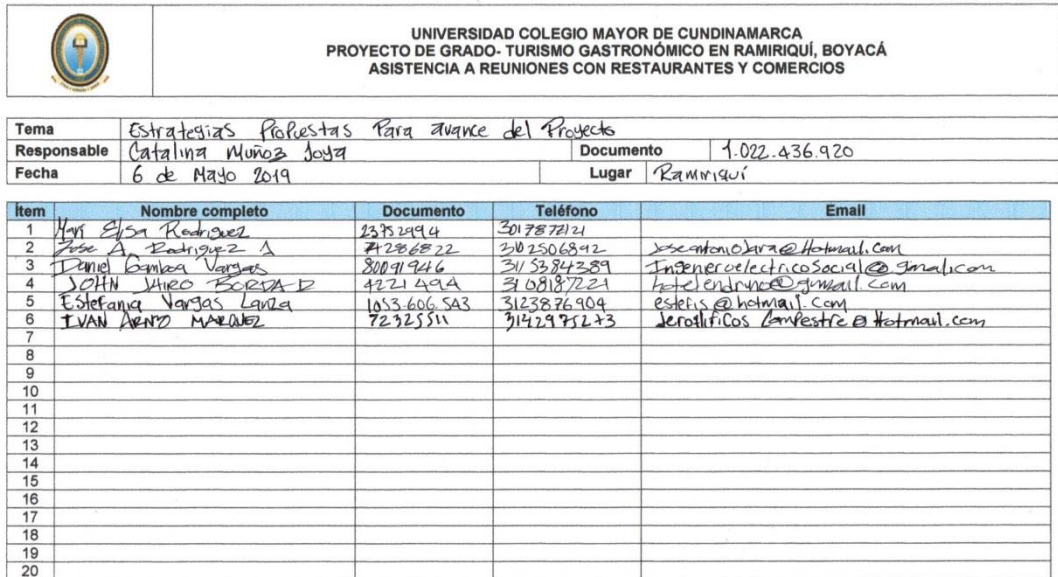 UNIVERSIDAD COLEGIO MAYOR DE CUNDINAMARCA
PROYECTO DE GRADO- TURISMO GASTRONÓMICO EN RAMIRIQUÍ, BOYACÁ
ASISTENCIA A REUNIONES CON RESTAURANTES Y COMERCIOS
Tema Estrategias Propuestas Para avance del Proyecto
Responsable Catalina Muñoz Joya Documento 1.022.436.920
Fecha 6 de Mayo 2019 Lugar Ramiriquí
Ítem Nombre completo Documento Teléfono Email
1 Elisa Rodriguez 23952994 3017872121
2 Jose A Rodriguez J 74286822 3102506892 Joseantoniojara@Hotmail.com
3 Daniel Gamboa Vargas 80091946 3115384389 Ingenieroelectricosocial@gmail.com
4 JOHN JAIRO BORDA D 4221494 3108187221 @gmail.com
5 Estefania Vargas Lanza 1053.606.543 3123876904 estefis@hotmail.com
6 IVAN MARQUEZ 72325511 3142975273 Jeroglificos Campestre@Hotmail.com
7
8
9
10
11
12
13
14
15
16
17
18
19
20